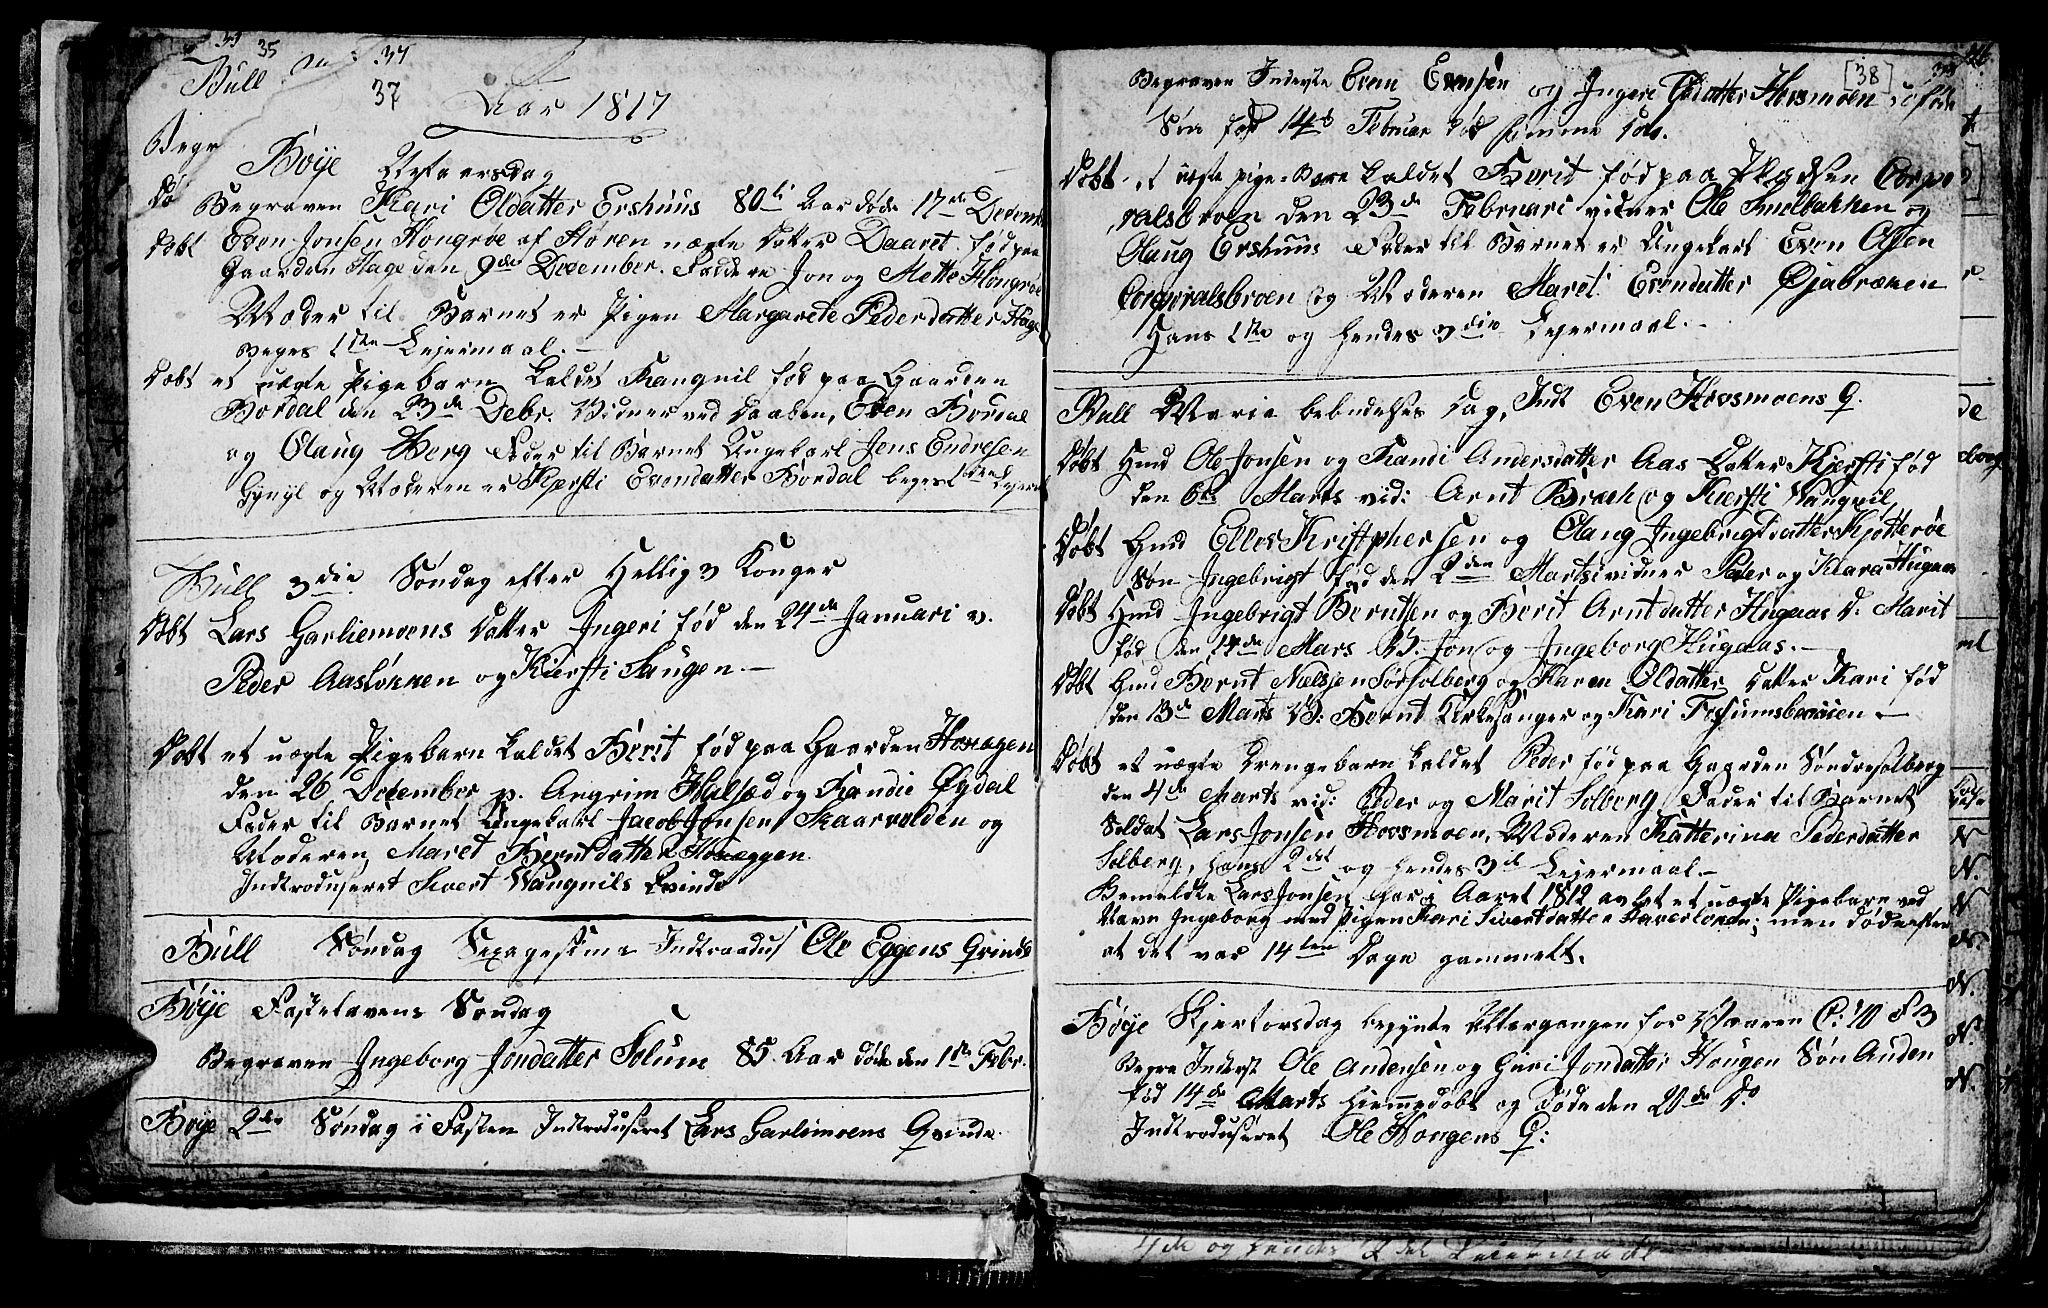 35
37
Bull
37
Aar 1817
Begr
Böye Nytaarsdag
Begraven Kari Oldatter Ershuus 80ti Aar döde 17de Decemb
Döbt Even Jonsen Hongröe af Hören uægte Datter Daaret. föd paa
Gaarden Hage den 9de December. Faddere Jon og Mette Hongröe
Moder til Barnet er Pigen Margarete Pedersdatter Hage
Beges 1ste Lejermaal. —
Döbt et uægte Pigebarn kaldet Rangnil föd paa Gaarden
Bordal den 23de Debr. Vidner ved Daaben, Even Bordal
og Olaug Berg Fader til Barnet Ungekarl Jens Endresen
og Moderen er Kjersti Evendatter Bordal beges 1ste Lejerm
Bull 3die Söndag efter Hellig 3 Konger
Döbt Lars Garliemoens Datter Ingeri föd den 24de Januari v.
Peder Aaslökken og Kiersti Haugen. —
Döbt et uægte Pigebarn kaldet Berit föd paa Gaarden Horagen
den 26 December v. Angrim Halsæd og Randie Öydal
Fader til Barnet Ungekarl Jacob Jonsen Skaarvolden og
Moderen Maret Berntdatter Horæggen
Indtroduseret Sivert Vangnils Qvinde
Bull Söndag Sexagesima Indtroadus Ole Eggens Qvinde
Böye Fastelavens Söndag
Begraven Ingeborg Jondatter Solum 85 Aar döde den 1ste Febr.
Böye 2den Söndag i Fasten Indtroduseret Lars Garlimoens Qvinde
[38]
Begraven Inderste Even Evensen og Ingeri Hovsmoen
Sön föd 14de Februar död samme
Döbt et uægte pige-Barn kaldet Berit föd paa Pladsen Corpo
ralsbroen den 23de Februari vidner Ole Smelbakken og
Olaug Ershuus Fader til Barnet er Ungekarl Even Olsen
Corporalsbroen og Moderen Maret Evendatter Djabrækken
Hans 1ste og hendes 3die Lejermaal. —
Bull Maria bebudelses Dag, Indt Even Hovsmoens Q.
Döbt Hmd Ole Jonsen og Randi Andersdatter Aas Datter Kjersti föd
den 6te Marts vid: Arnt Bræk og Kiersti Vangnil
Döbt Hmd Ellev Kristphersen og Olaug Ingebrigtdatter Kjötteröe
Sön Ingebrigt föd den 2den Marts vidner Peder og Klara Hugaas
Döbt Hmd Ingebrigt Berntsen og Berit Arntdatter Hugaas D. Marit
föd den 14de Mars V. Jon og Ingeborg Hugaas. —
Döbt Hmd Bernt Nielsen Sörsolberg og Karen Oldatter Datter Kari föd
den 13de Marts V: Bernt Kirkesanger og Kari Fossumsbroen. —
Döbt et uægte Drengebarn kaldet Peder föd paa Gaarden Söndresolberg
den 4de Marts vid: Peder og Marit Solberg, Fader til Barnet
Soldat Lars Jonsen Hovsmoen, Moderen Katterina Pedersdatter
Solberg, hans 2det og hendes 3die Lejermaal. —
Bemeldte Lars Jonsen har i Aaret 1812 avlet et uægte Pigebarn ved
Navn Ingeborg med Pigen Kari Sivertdatter men döde efter
at det var 14ten Dage gammelt.
Böye Skjertorsdag begynte Altergangen for Vaaren C: 40 S 3
Begra Inderst Ole Andersen og Guri Jondatter Hougen Sön Anden
föd 14de Marts hiemmedöbt og döde den 20de Do
Indtroduseret Ole Hougens Q:
4de og hendes 2det Leiermaal